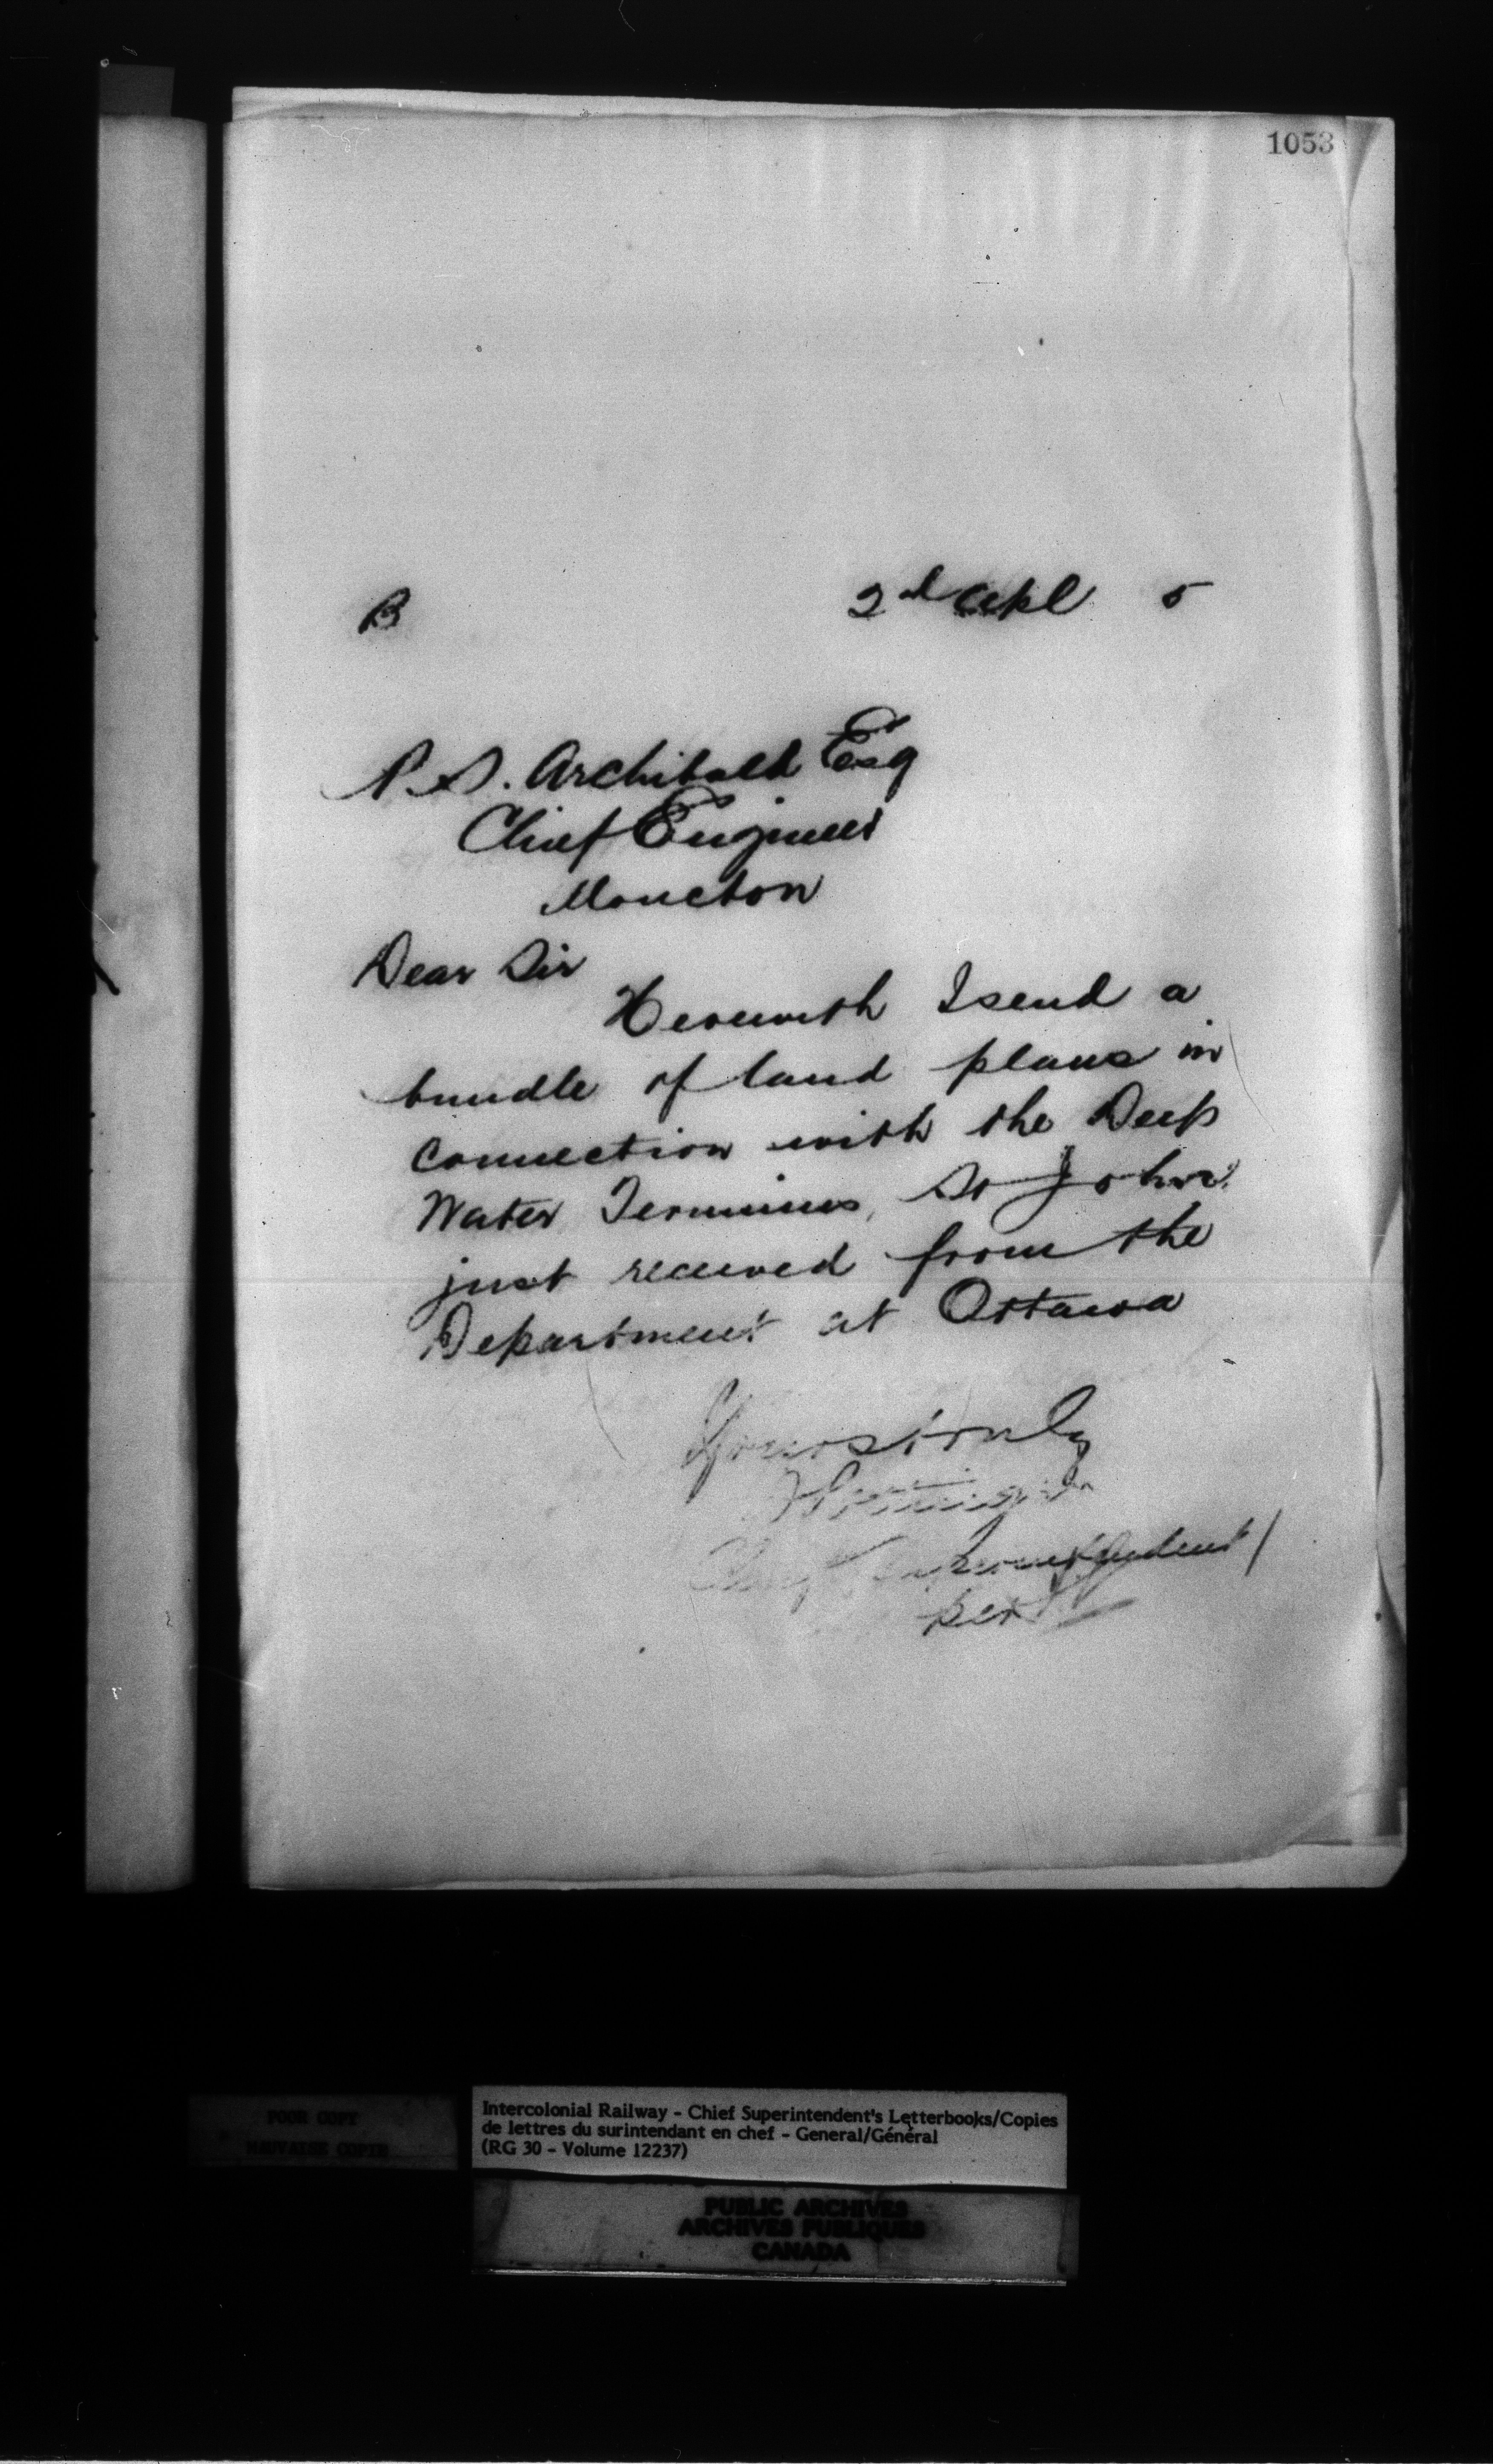 1053
B 2nd Apl 5
P. S. Archibald Esq
Chief Engineer
Moncton
Dear Sir
Herewith I send a
bundle of land plans in
connection with the Deep
Water Terminus, St John.
just received from the
Department at Ottawa
Yours truly
Chief Superintendent
per
POOR COPY
MAUVAISE COPIE
Intercolonial Railway - Chief Superintendent's Letterbooks/Copies
de lettres du surintendant en chef - General/Général
(RG 30 - Volume 12237)
PUBLIC ARCHIVES
ARCHIVES PUBLIQUES
CANADA